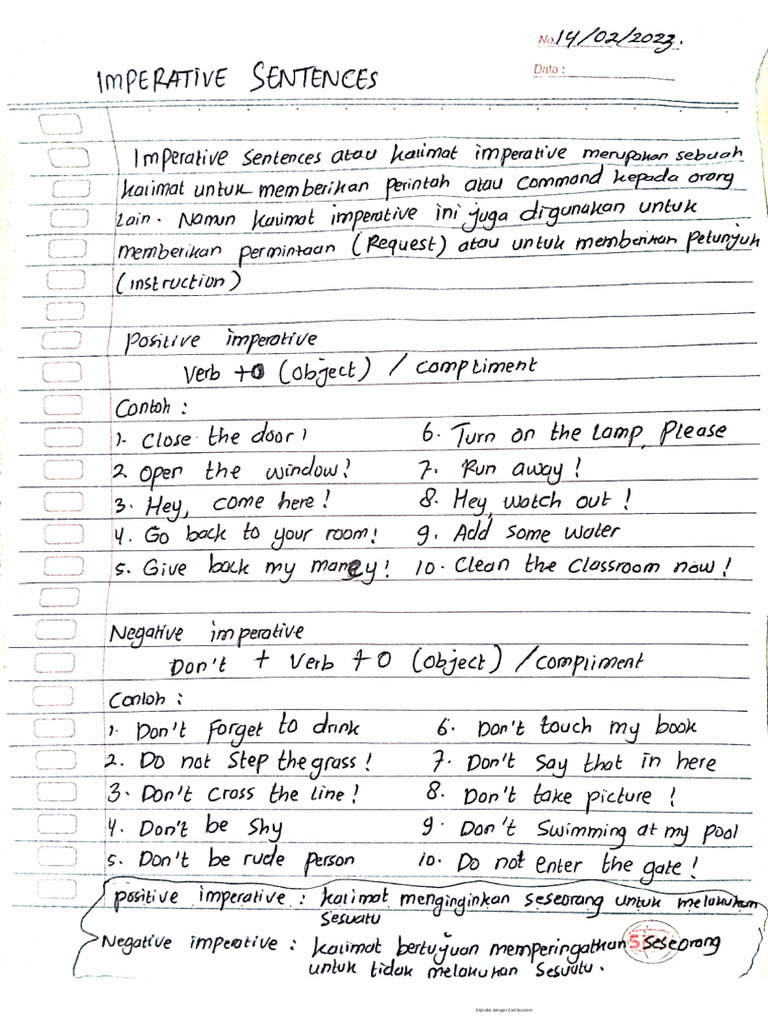 No. 14/02/2023.
Data :
IMPERATIVE SENTENCES
Imperative Sentences atau kalimat imperative merupakan sebuah
kalimat untuk memberikan perintah atau Command kepada orang
Lain. Namun kalimat imperative ini juga digunakan untuk
memberikan permintaan (Request) atau untuk memberikan Petunjuk
(instruction)
Positive imperative
Verb + O (object) / compliment
Contoh :
1. Close the door !
2. Open the window!
3. Hey, come here !
4. Go back to your room!
5. Give back my maney!
6. Turn on the lamp, Please
7. Run away !
8. Hey, watch out !
9. Add some water
10. Clean the classroom now !
Negative imperative
Don't + Verb + O (object) / compliment
Contoh :
1. Don't Forget to drink
2. Do not Step the grass !
3. Don't Cross the line !
4. Don't be Shy
5. Don't be rude person
6. Don't touch my book
7. Don't Say that in here
8. Don't take picture !
9. Don't Swimming at my pool
10. Do not enter the gate !
positive imperative : kalimat menginginkan seseorang untuk melakukan
Sesuatu
Negative imperative : kalimat bertujuan memperingatkan seseorang
untuk tidak melakukan Sesuatu.
Dipindai dengan CamScanner